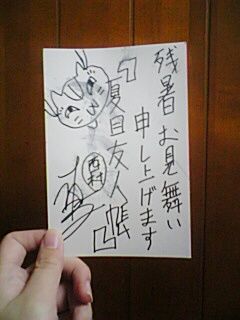 残暑お見舞い
申し上げます
『夏目友人帳』
西村